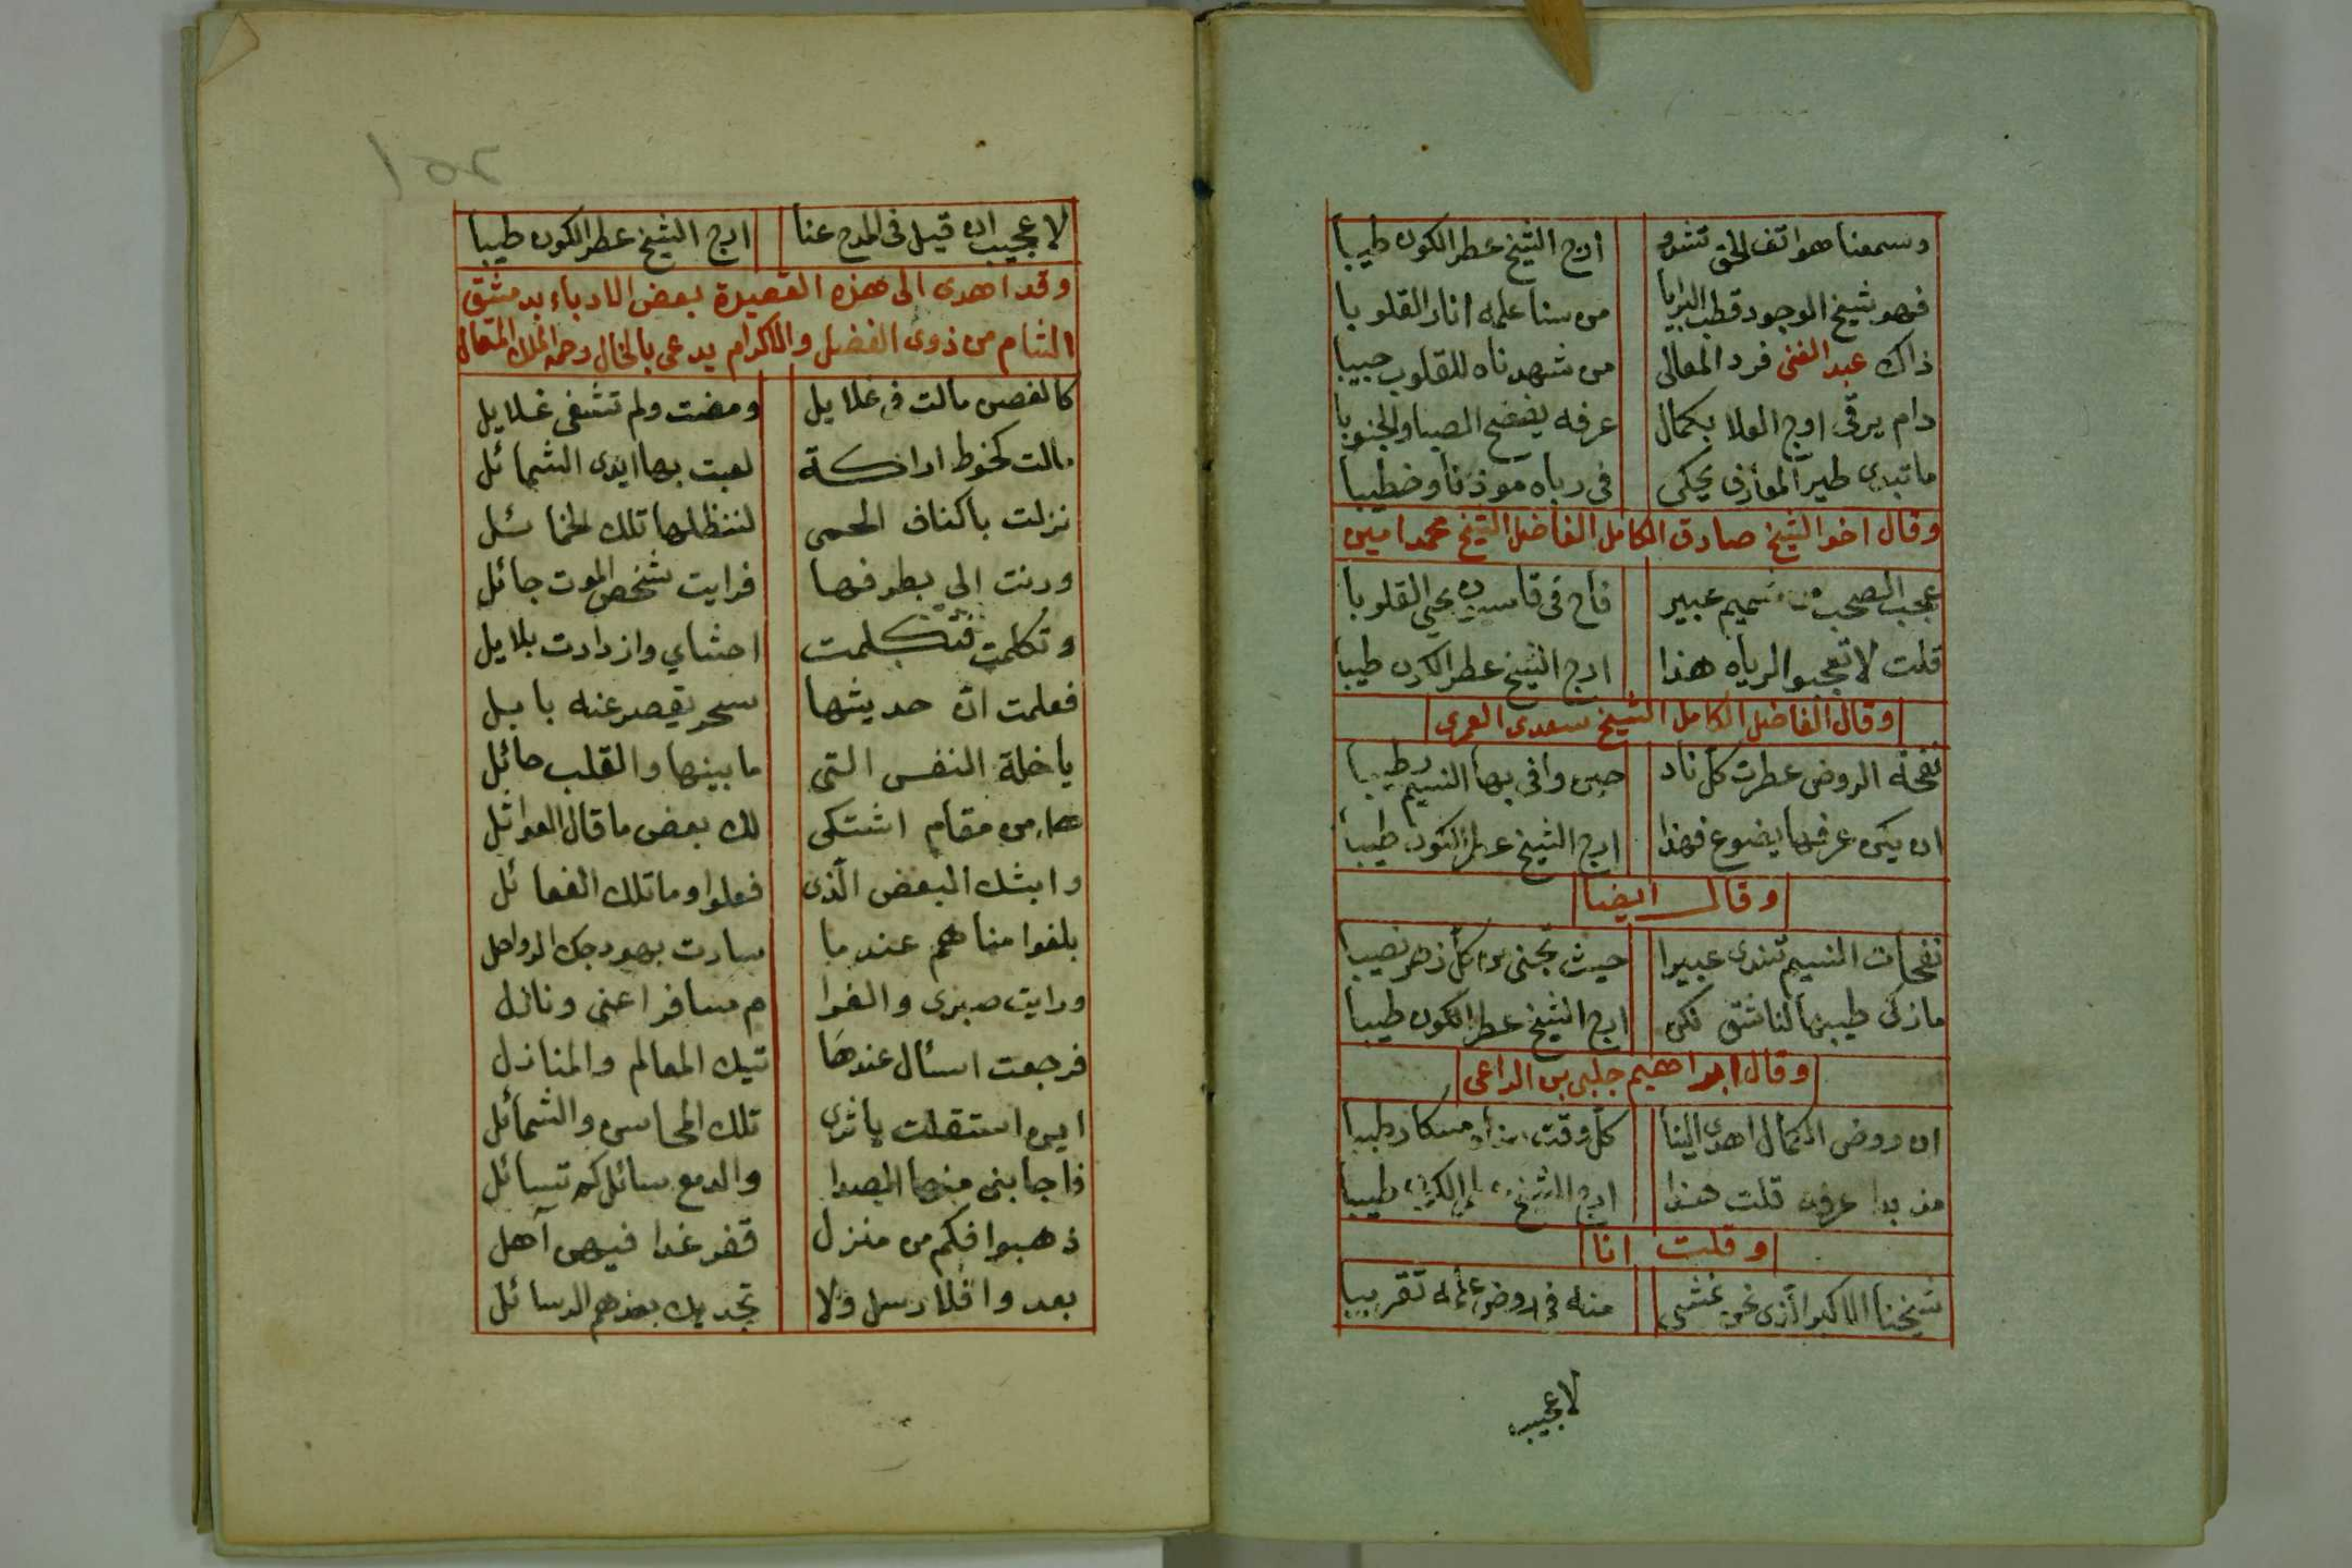 وسمعنا هواتف الحق تشدو ارج الشيخ عطر الكون طيبا
فهو شيخ الوجود قطب البرايا من سنا علمه انار القلوبا
ذاك عبد الغنى فرد المعالى من شهدناه للقلوب حبيبا
دام يرقى اوج العلا بكمال عرفه يفضح الصبا والجنوبا
ما تبدى طير يحكى فى رباه موذنا وخطيبا
وقال اخو الشيخ صادق الكامل الفاضل الشيخ محمد امين
عجب الصحب من شميم عبير فاح فى قاسيون يحيى القلوبا
قلت لا تعجبوا لرياه هذا ارج الشيخ عطر الكون طيبا
وقال الفاضل الكامل الشيخ سعدى العمرى
نفحة الروض عطرت كل ناد حين وافى بها النسيم رطيبا
ان يكن عرفها يضوع فهذا ارج الشيخ عطر الكون طيبا
وقال ايضا
نفحات النسيم تندى عبيرا حيث تجنى من كل زهر نصيبا
ما زكى طيبها لناشق لكن ارج الشيخ عطر الكون طيبا
وقال ابراهيم جلبى بن الراعى
ان روض الكمال اهدى الينا كل وقت مسكا رطيبا
مذ بدا عرفه قلت هذا ارج الشيخ عطر الكون طيبا
وقلت انا
شيخنا الاكبر الذى نحن نمشى منه فى روض علمه تقريبا
لا عجيب
١٥٢
لا عجيب ان قيل فى المدح عنا ارج الشيخ عطر الكون طيبا
وقد اهدى الى هذه القصيدة بعض الادباء بدمشق
الشام من ذوى الفضل والاكرام يدعى بالخال رحمه الملك المتعال
كالغصن مالت فى غلايل ومضت ولم تشفى غلايل
مالت كخوط اراكة لعبت بها ايدى الشمائل
نزلت باكناف الحمى لتظلها تلك الخمائل
ورنت الى بطرفها فرايت شخص الموت جائل
وتكلمت فتكلمت احشاي وازدادت بلايل
فعلمت ان حديثها سحر يقصر عنه بابل
يا خلة النفس التى ما بينها والقلب حائل
من مقام اشتكى لك بعض ما قال العواذل
وابثك البعض الذى فعلوا وما تلك الفعائل
بلغوا مناهم عندما سارت بهودجك الرواحل
ورايت صبرى والغرا م مسافرا عنى ونازل
فرجعت اسئال عندها تيك المعالم والمنازل
اين استقلت ياثرى تلك المحاسن والشمائل
فاجابنى منها الصدا والدمع سائل كم تسائل
ذهبوا فكم من منزل قفر غدا فيهن آهل
بعدوا فلا رسل ولا تجديك بعدهم الرسائل